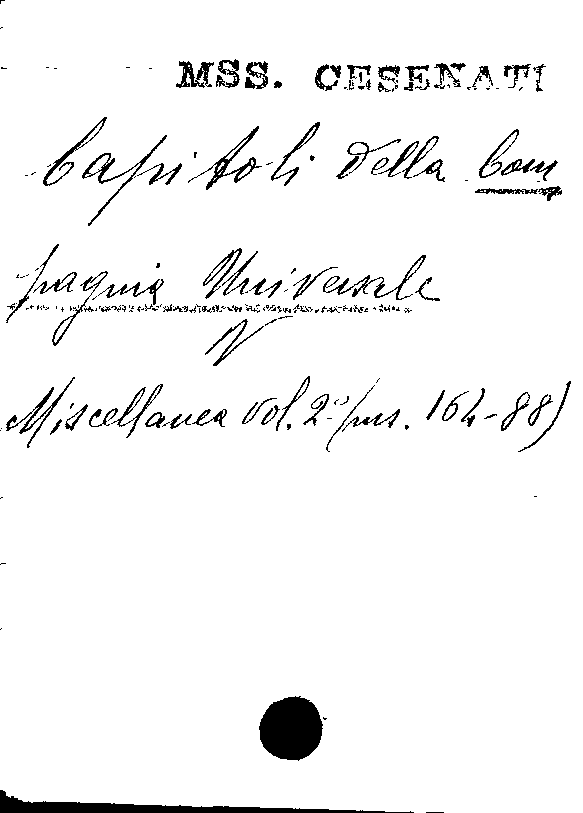 MSS. CESENATI
Capitoli della Com
pagnia Universale
V
Miscellanea vol. 2º (ms. 164-88)